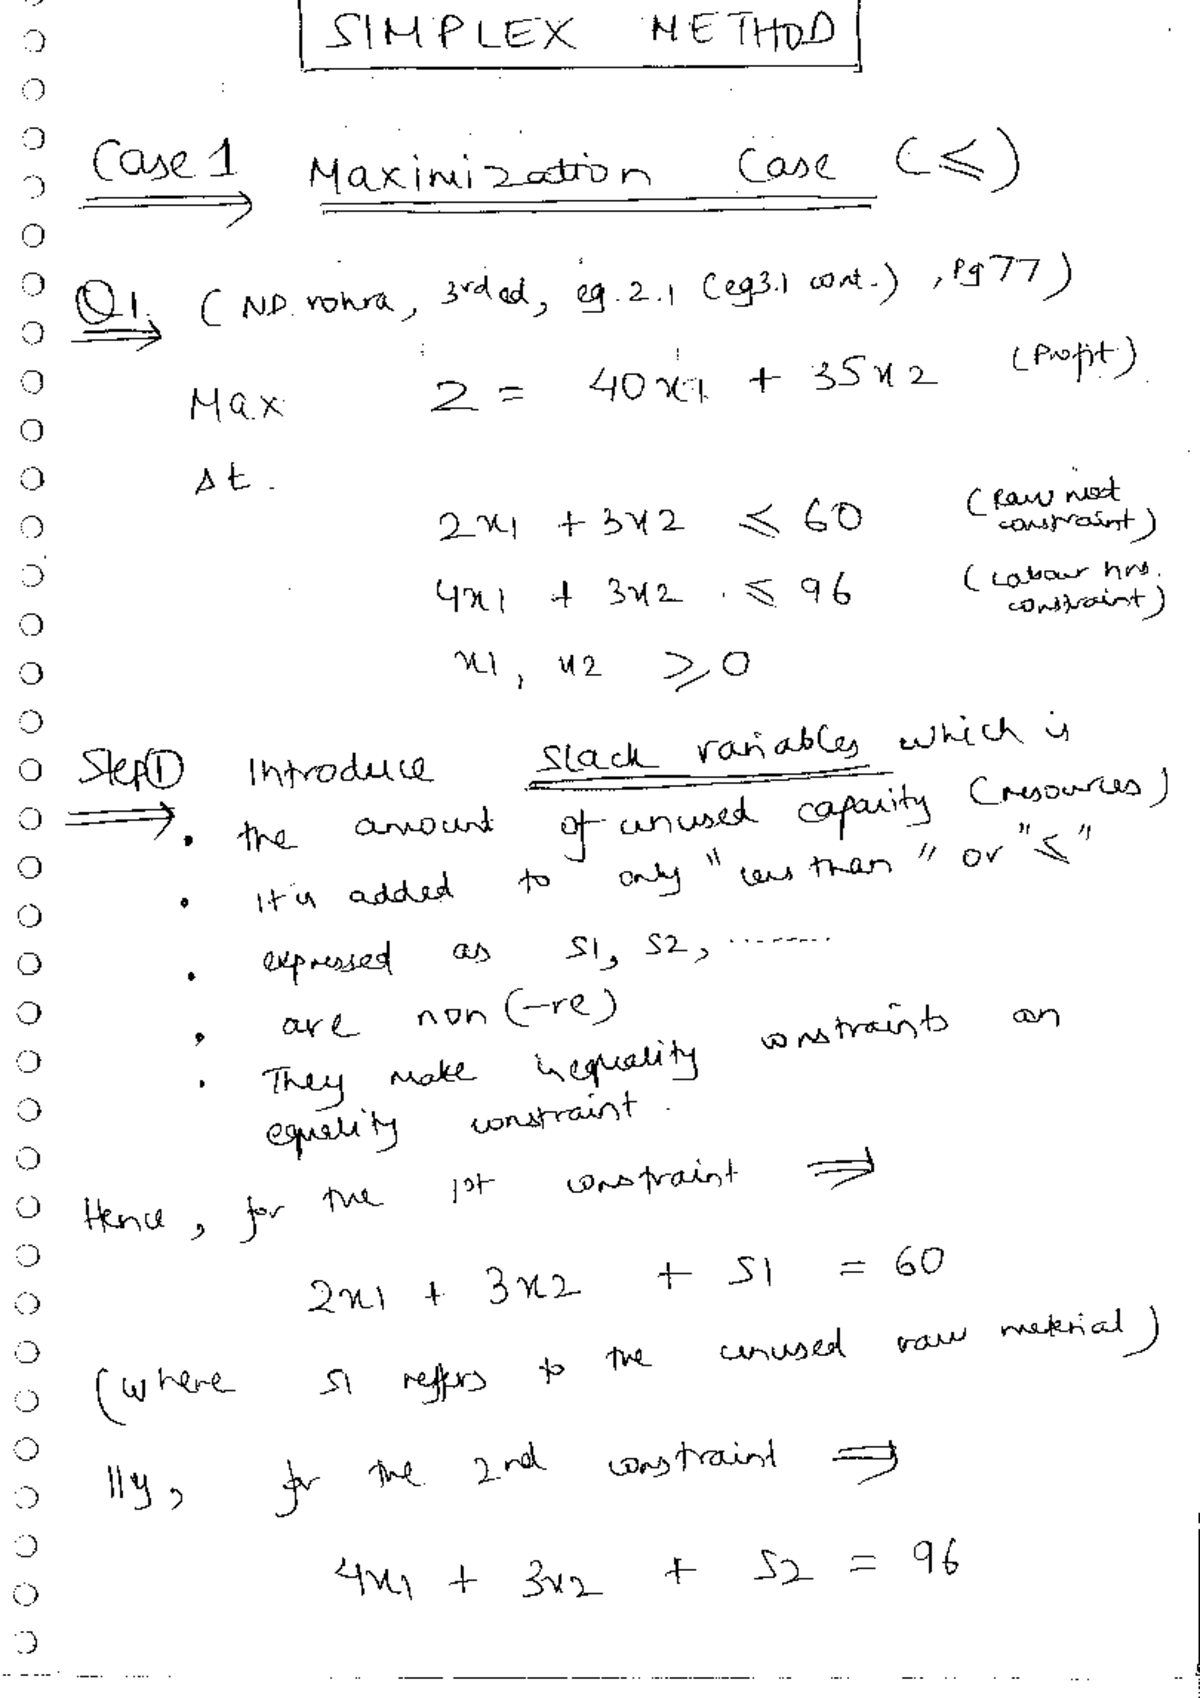 SIMPLEX METHOD
Case 1 Maximization Case (≤)
Q1. (N.D. vohra, 3rd ed, eg. 2.1 (eg3.1 cont.), Pg 77)
Max Z = 40x1 + 35x2 (Profit)
st.
2x1 + 3x2 ≤ 60 (Raw mat constraint)
4x1 + 3x2 ≤ 96 (Labour hrs. constraint)
x1, x2 ≥ 0
Step① Introduce Slack variables which is
• the amount of unused capacity (resources)
• It is added to only "less than" or "≤"
• expressed as S1, S2, ........
• are non (-ve)
• They make inequality constraints an
equality constraint.
Hence, for the 1st constraint ⇒
2x1 + 3x2 + S1 = 60
(where S1 reffers to the unused raw material)
lly, for the 2nd constraint ⇒
4x1 + 3x2 + S2 = 96